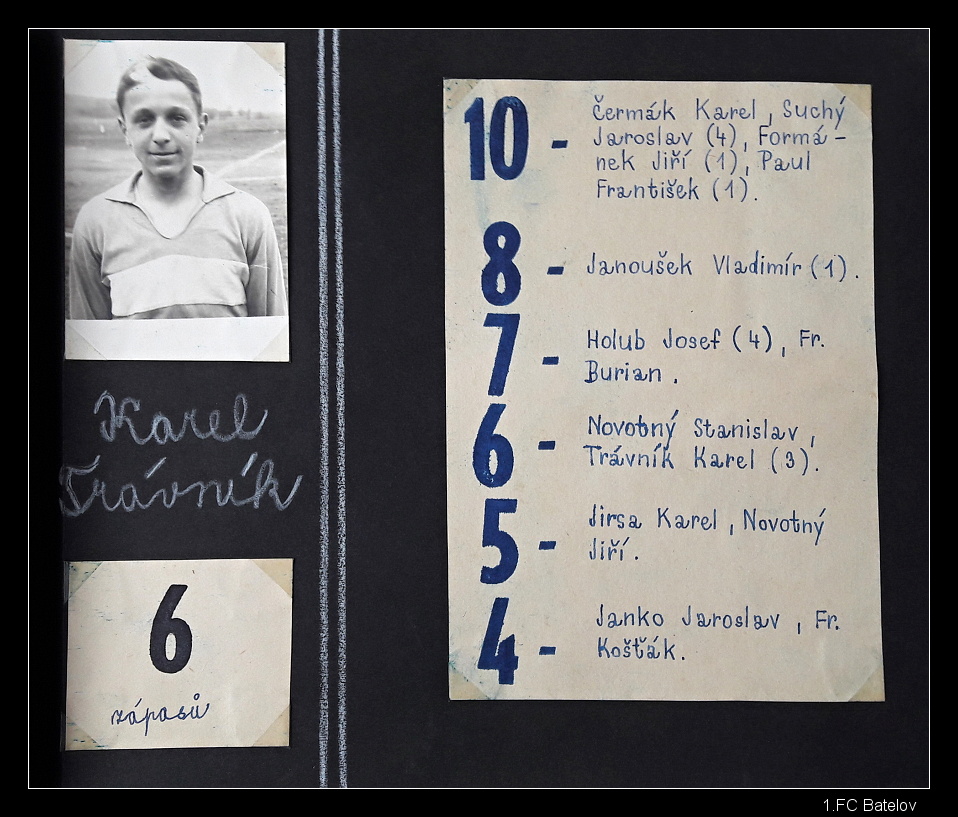 Karel
Trávník
6
zápasů
10 - Čermák Karel, Suchý
Jaroslav (4), Formá-
nek Jiří (1), Paul
František (1).
8 - Janoušek Vladimír (1).
7 - Holub Josef (4), Fr.
Burian.
6 - Novotný Stanislav,
Trávník Karel (3).
5 - Jirsa Karel, Novotný
Jiří.
4 - Janko Jaroslav, Fr.
Košťák.
1.FC Batelov